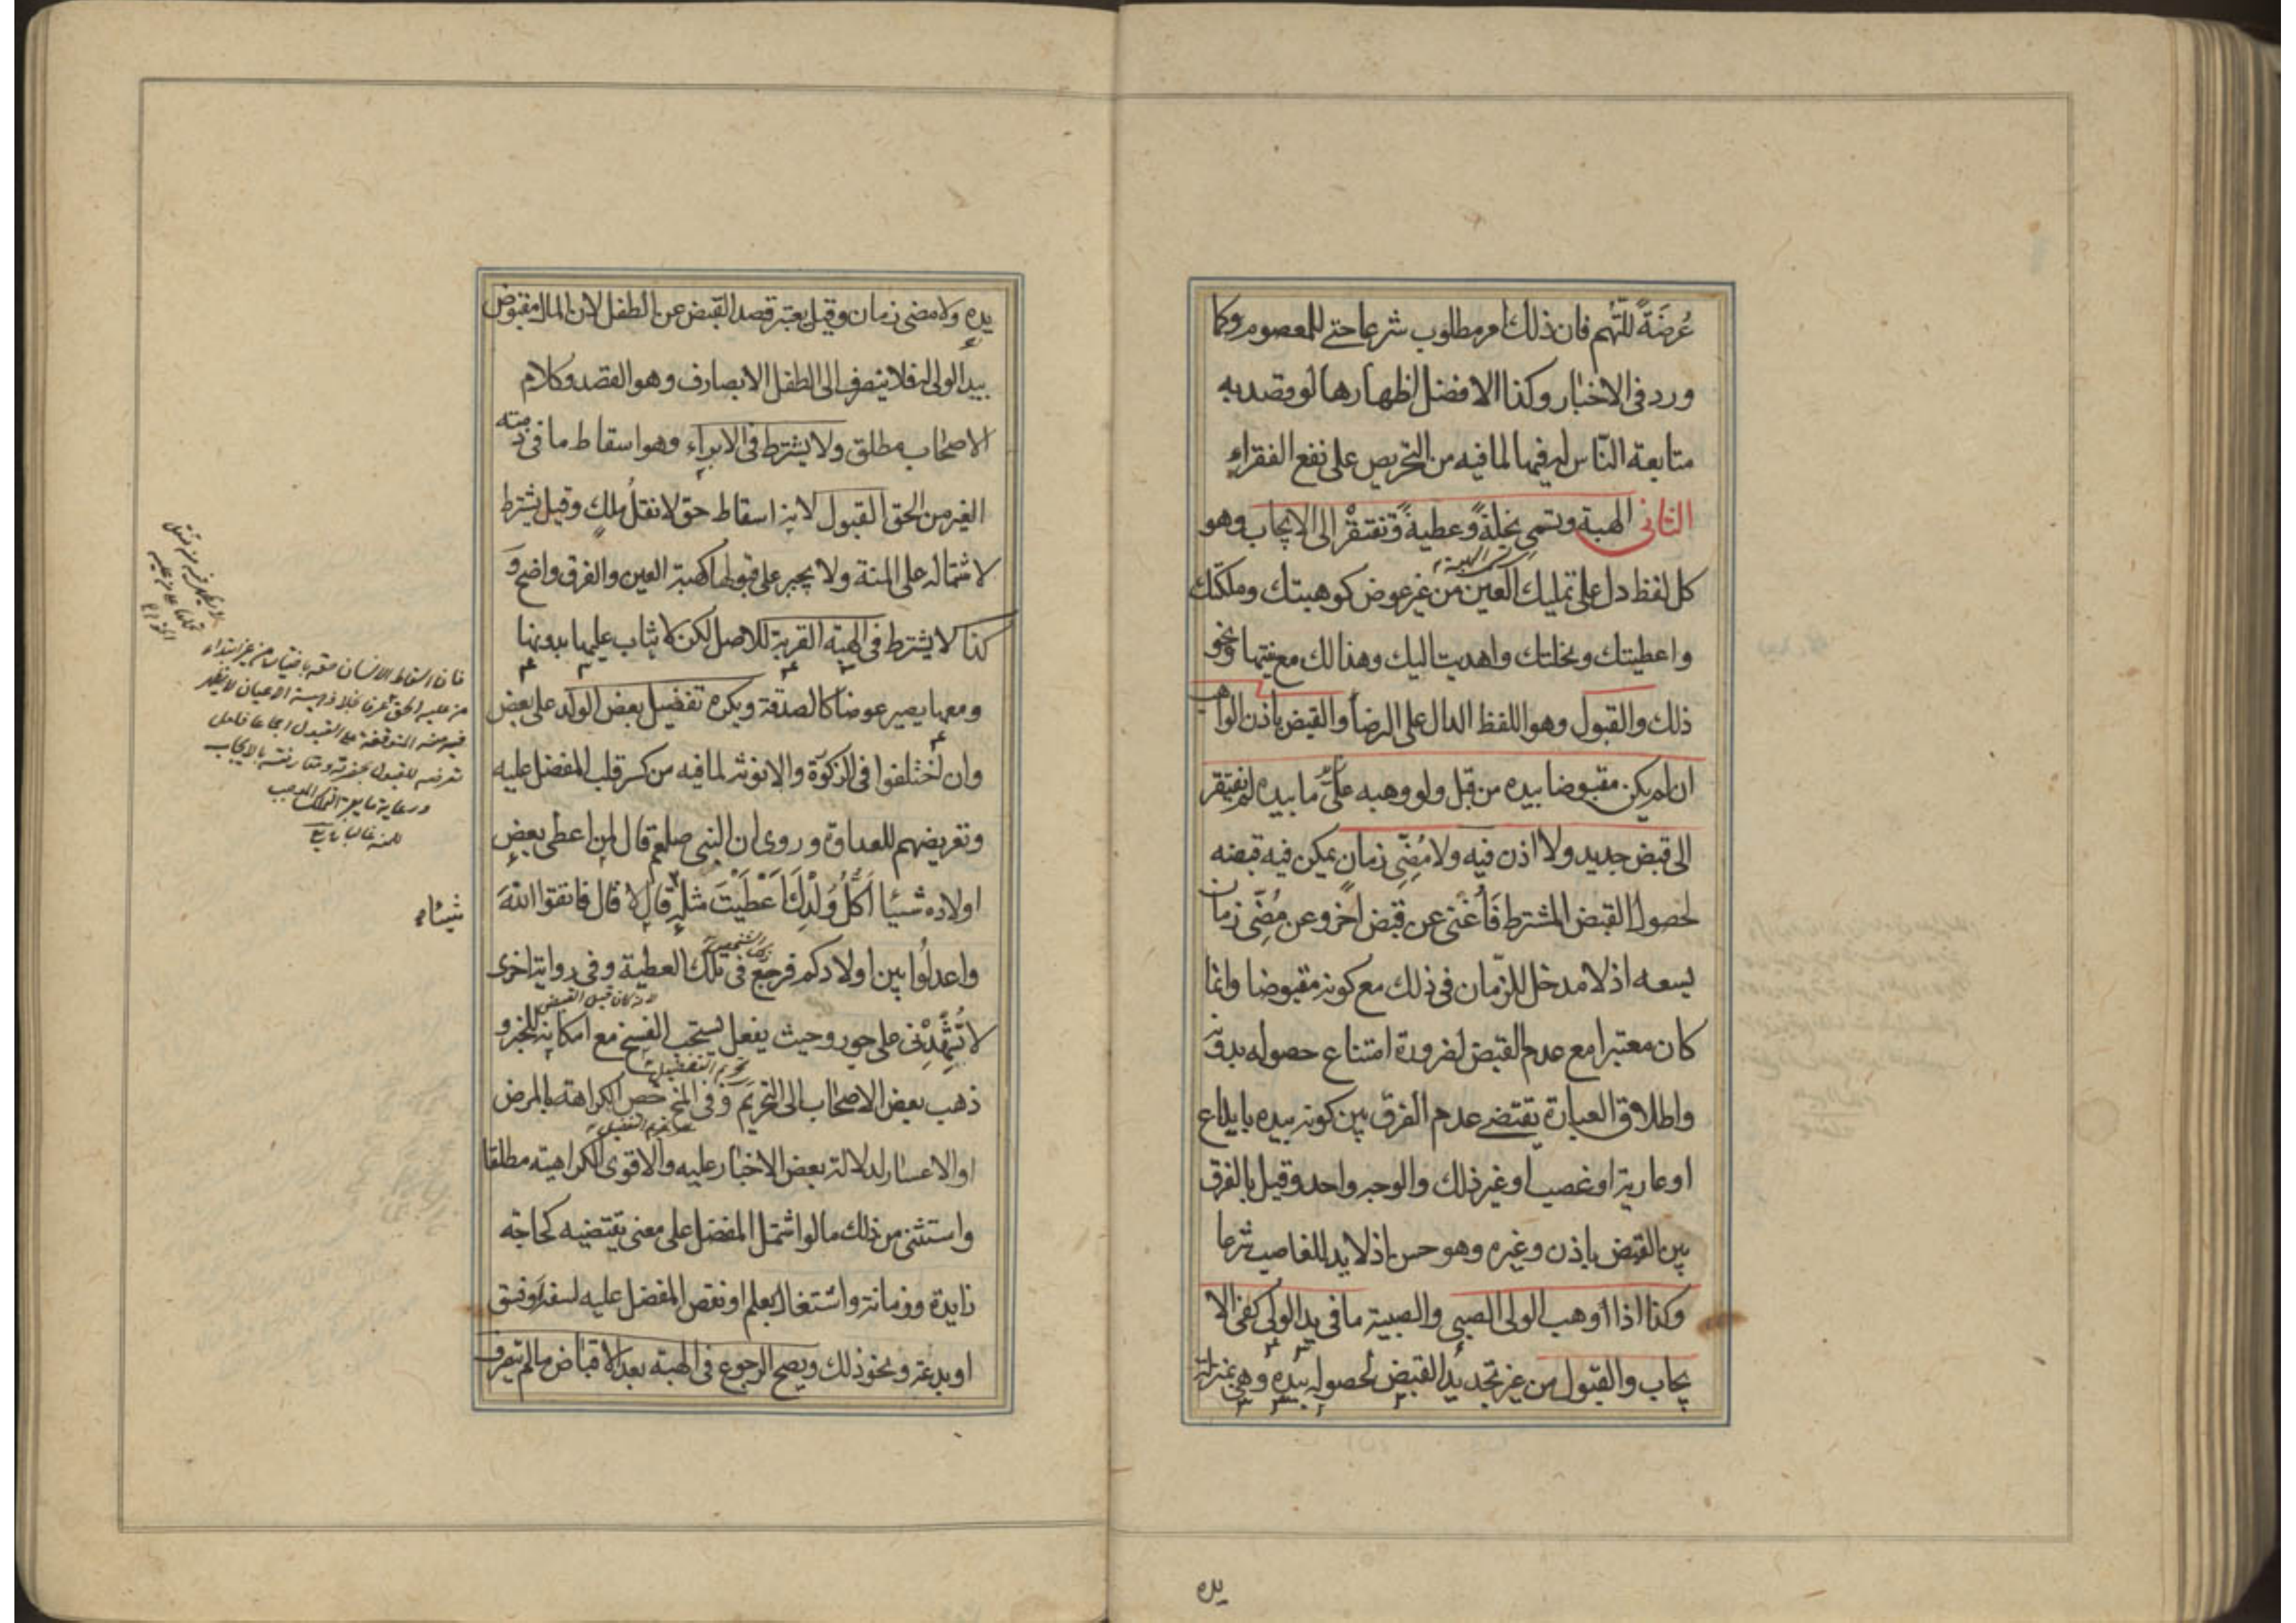 عُرضَةً للتّهم فان ذلك امر مطلوب شرعا حتى للمعصوم وكما
ورد فى الاخبار وكذا الافضل اظهارها لو قصد به
متابعة النّاس له فيها لما فيه من التحريص على نفع الفقراء
الثانى الهبة وتسمى نحلةً وعطيةً وتفتقر الى الايجاب وهو
كل لفظ دل على تمليك العين من غير عوض كوهبتك وملكتك
واعطيتك ونحلتك واهديت اليك وهذا لك مع نيتها ونحو
ذلك والقبول وهو اللفظ الدال على الرضا والقبض باذن الواهب
ان لم يكن مقبوضا بيده من قبل ولو وهبه ما بيده لم يفتقر
الى قبض جديد ولا اذن فيه ولا مُضِّى زمان يمكن فيه قبضه
لحصول القبض المشترط فَأغنى عن قبض اخر وعن مُضِّى زمان
يسعه اذ لا مدخل للزّمان فى ذلك مع كونه مقبوضا وانما
كان معتبرا مع عدم القبض لضرورة امتناع حصوله بدونه
واطلاق العبارة يقتضى عدم الفرق بين كونه بيده بايداع
او عارية او غصب او غير ذلك والوجه واحد وقيل بالفرق
بين القبض باذن وغيره وهو حسن اذ لا يد للغاصب شرعا
وكذا اذا وهب الولى الصبى والصبية ما فى يد الولى كفى الا
يجاب والقبول من غير تجديد القبض لحصوله بيده وهى بمنزلة
يده
يده ولا مضى زمان وقيل يعتبر قصد القبض عن الطفل لان المال مقبوض
بيد الولى له فلا ينصرف الى الطفل الا بصارف وهو القصد وكلام
الاصحاب مطلق ولا يشترط فى الابراء وهو اسقاط ما فى ذمته
الغير من الحق القبول لانه اسقاط حق لا نقلُ ملك وقيل يشترط
لاشتماله على المنة ولا يجبر على قبولها كهبة العين والفرق واضح وَ
كذا لا يشترط فى الهبة القربة للاصل لكن لا يثاب عليها بدونها
ومعها يصير عوضا كالصدقة ويكره تفضيل بعض الولد على بعض
وان اختلفوا فى الذكورة والانوثة لما فيه من كسر قلب المفضل عليه
وتعريضهم للعداوة وروى ان النبى صلعم قال لمن اعطى بعض
اولاده شيئا اَكُلُّ وُلْدِكَ اَعْطَيْتَ مثله قال لا قال فاتقوا الله
واعدلُوا بين اولادكم فرجع فى تلك العطية وفى رواية اخرى
لا تُشْهِدْنى على جور وحيث يفعل يستحب الفسخ مع امكانه للخبر و
ذهب بعض الاصحاب الى التحريم وَفى المخ خص الكراهة بالمرض
او الاعسار لدلالة بعض الاخبار عليه والاقوى الكراهية مطلقا
واستثنى من ذلك ما لو اشتمل المفضل على معنى يقتضيه كحاجة
زايدة وزمانة واشتغال بعلم او نقص المفضل عليه لسفه او فسق
او بدعة ونحو ذلك ويصح الرجوع فى الهبة بعد الاقباض ما لم يتصرف
تحريم التفضيل
لانه كان قبل القبض
فان اسقاط الانسان حقه باختياره من غير ابتداء